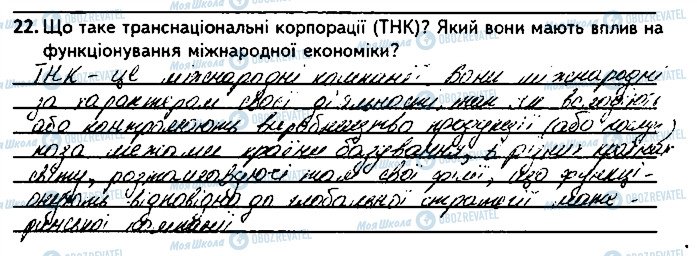 22. Що таке транснаціональні корпорації (ТНК)? Який вони мають вплив на
функціонування міжнародної економіки?
ТНК - це міжнародні компанії. Вони міжнародні
за характером своєї діяльності, так як володіють
або контролюють виробництво продукції (або послуг)
поза межами країни базування, в різних країнах
світу, розташовуючі там свої філії, що функці-
онують відповідно до глобальної стратегії мате-
ринської компанії